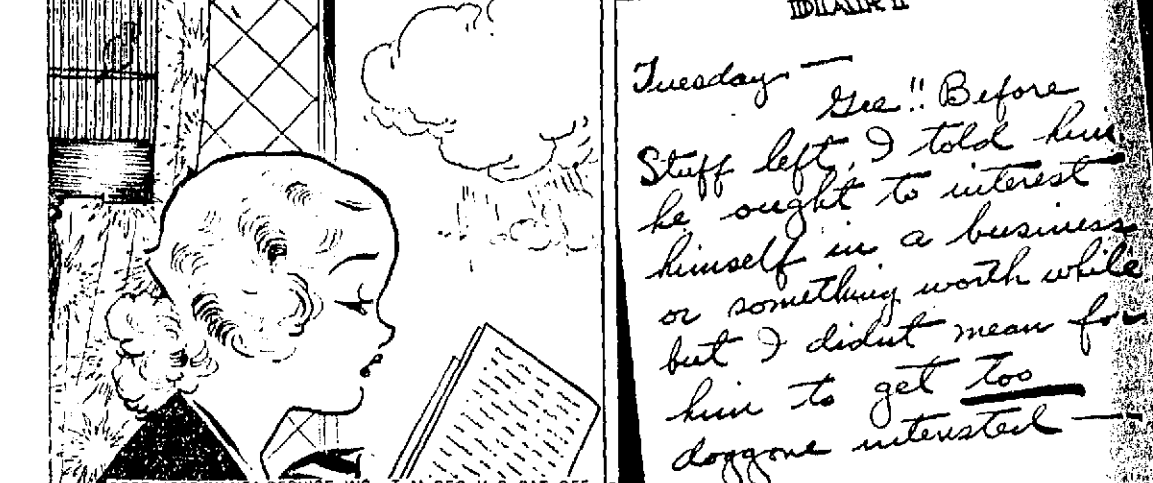 DIARY
Tuesday —
Gee!! Before
Stuff left, I told him
he ought to interest
himself in a business
or something worth while
but I didn't mean for
him to get too
doggone interested —